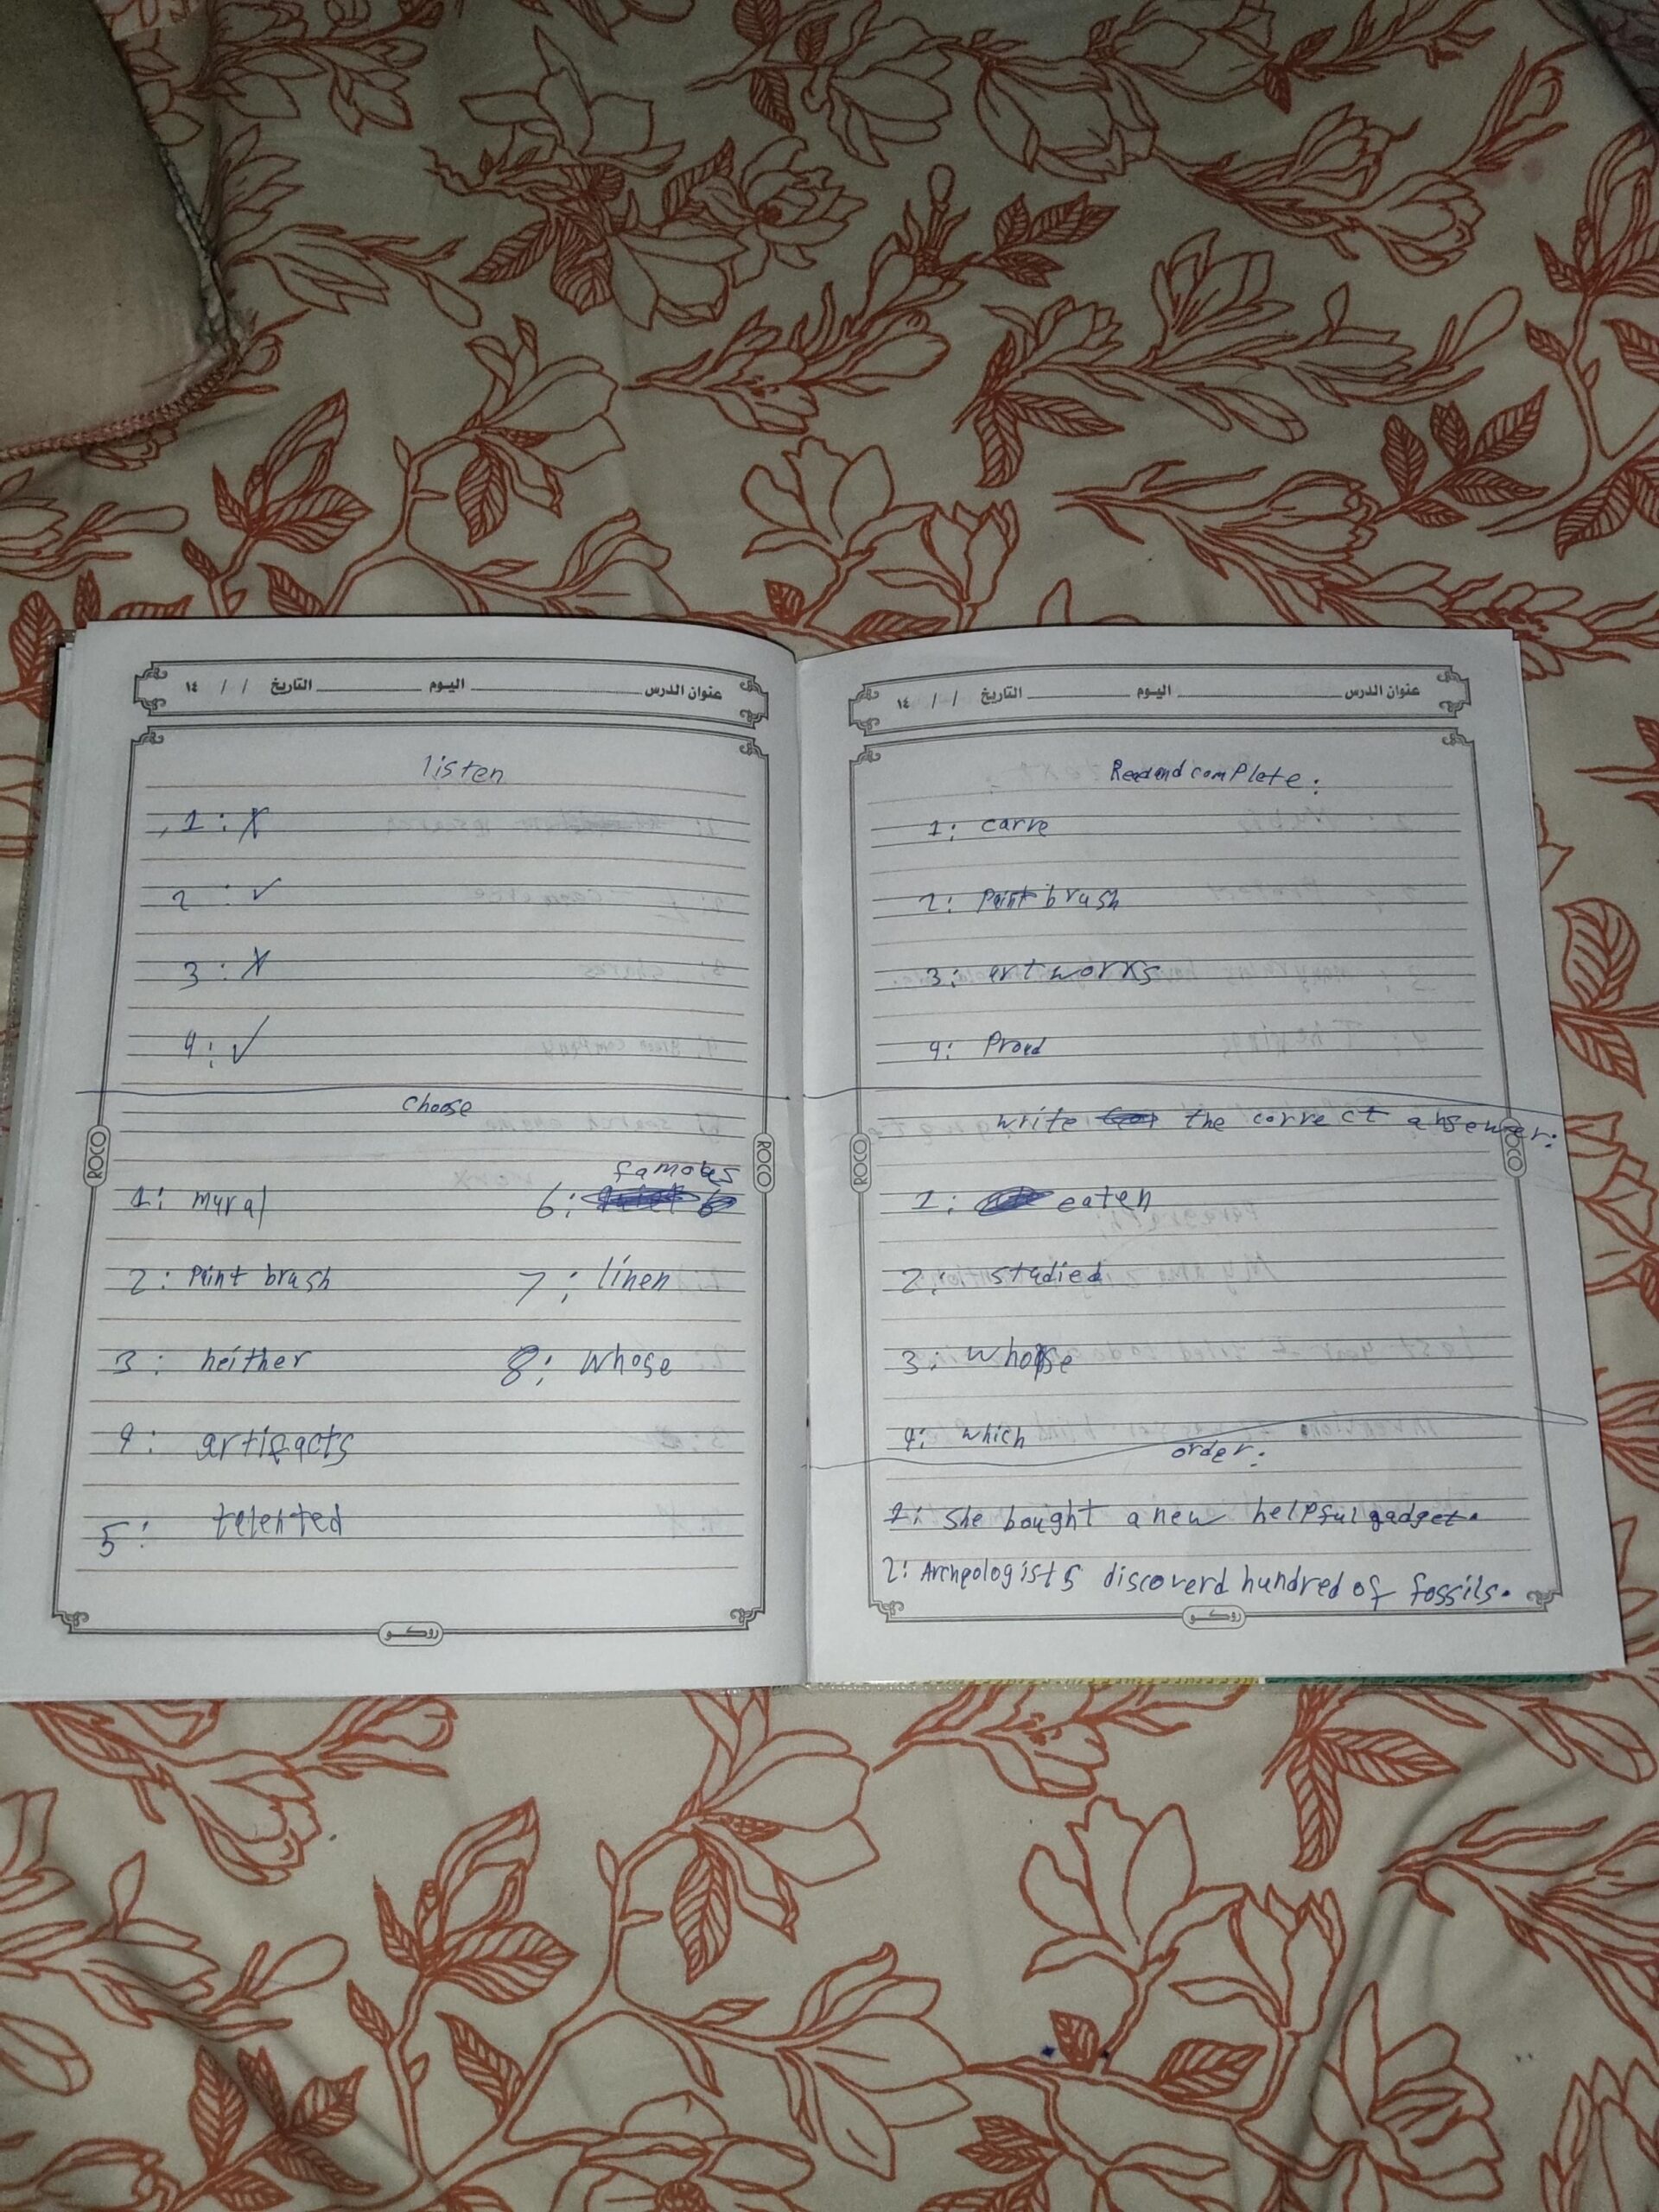 عنوان الدرس اليوم التاريخ / / ١٤
listen
1: X
2: ✓
3: X
4: ✓
choose
1: mural
2: Paint brush
3: neither
4: artifacts
5: telented
6: famous
7: linen
8: whose
ROCO
ROCO
روكو
عنوان الدرس اليوم التاريخ / / ١٤
Read and complete:
1: carve
2: Paint brush
3: art works
4: Proud
write the correct absewer:
1: eaten
2: studied
3: whose
4: which
order:
1: She bought a new helpful gadget.
2: Archeologists discoverd hundred of fossils.
ROCO
ROCO
روكو